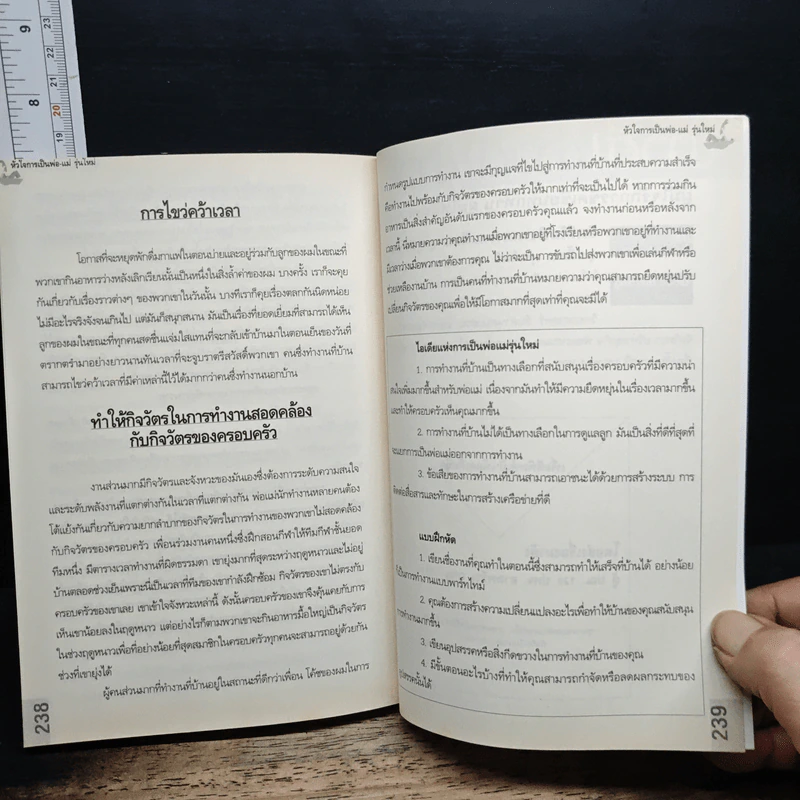 9
8
23
22
21
20
19
หัวใจการเป็นพ่อ-แม่ รุ่นใหม่
การไขว่คว้าเวลา
โอกาสที่จะหยุดพักดื่มกาแฟในตอนบ่ายและอยู่ร่วมกับลูกของผมในขณะที่
พวกเขากินอาหารว่างหลังเลิกเรียนนั้นเป็นหนึ่งในสิ่งล้ำค่าของผม บางครั้ง เราก็จะคุย
กันเกี่ยวกับเรื่องราวต่างๆ ของพวกเขาในวันนั้น บางทีเราก็คุยเรื่องตลกกันนิดหน่อย
ไม่มีอะไรจริงจังจนเกินไป แต่มันก็สนุกสนาน มันเป็นเรื่องที่ยอดเยี่ยมที่สามารถได้เห็น
ลูกของผมในขณะที่ทุกคนสดชื่นแจ่มใสแทนที่จะกลับเข้าบ้านมาในตอนเย็นของวันที่
ตรากตรำมาอย่างยาวนานทันเวลาที่จะจูบราตรีสวัสดิ์พวกเขา คนซึ่งทำงานที่บ้าน
สามารถไขว่คว้าเวลาที่มีค่าเหล่านี้ไว้ได้มากกว่าคนซึ่งทำงานนอกบ้าน
ทำให้กิจวัตรในการทำงานสอดคล้อง
กับกิจวัตรของครอบครัว
งานส่วนมากมีกิจวัตรและจังหวะของมันเองซึ่งต้องการระดับความสนใจ
และระดับพลังงานที่แตกต่างกันในเวลาที่แตกต่างกัน พ่อแม่นักทำงานหลายคนต้อง
โต้แย้งกันเกี่ยวกับความยากลำบากของกิจวัตรในการทำงานของพวกเขาไม่สอดคล้อง
กับกิจวัตรของครอบครัว เพื่อนร่วมงานคนหนึ่งซึ่งฝึกสอนกีฬาให้ทีมกีฬาชั้นยอด
ทีมหนึ่ง มีตารางเวลาทำงานที่ผิดธรรมดา เขายุ่งมากที่สุดระหว่างฤดูหนาวและไม่อยู่
บ้านตลอดช่วงเย็นเพราะนี่เป็นเวลาที่ทีมของเขากำลังฝึกซ้อม กิจวัตรของเขาไม่ตรงกับ
ครอบครัวของเขาเลย เขาเข้าใจจังหวะเหล่านี้ ดังนั้นครอบครัวของเขาจึงคุ้นเคยกับการ
เห็นเขาน้อยลงในฤดูหนาว แต่อย่างไรก็ตามพวกเขาจะกินอาหารมื้อใหญ่เป็นกิจวัตร
ในช่วงฤดูหนาวเพื่อที่อย่างน้อยที่สุดสมาชิกในครอบครัวทุกคนจะสามารถอยู่ด้วยกัน
ช่วงที่เขายุ่งได้
ผู้คนส่วนมากที่ทำงานที่บ้านอยู่ในสถานะที่ดีกว่าเพื่อน โค้ชของผมในการ
238
หัวใจการเป็นพ่อ-แม่ รุ่นใหม่
กำหนดรูปแบบการทำงาน เขาจะมีกุญแจที่ไขไปสู่การทำงานที่บ้านที่ประสบความสำเร็จ
คือทำงานไปพร้อมกับกิจวัตรของครอบครัวให้มากเท่าที่จะเป็นไปได้ หากการร่วมกิน
อาหารเป็นสิ่งสำคัญอันดับแรกของครอบครัวคุณแล้ว จงทำงานก่อนหรือหลังจาก
เวลานี้ นี่หมายความว่าคุณทำงานเมื่อพวกเขาอยู่ที่โรงเรียนหรือพวกเขาอยู่ที่ทำงานและ
มีเวลาว่างเมื่อพวกเขาต้องการคุณ ไม่ว่าจะเป็นการขับรถไปส่งพวกเขาเพื่อเล่นกีฬาหรือ
ช่วยเหลืองานบ้าน การเป็นคนที่ทำงานที่บ้านหมายความว่าคุณสามารถยืดหยุ่นปรับ
เปลี่ยนกิจวัตรของคุณเพื่อให้มีโอกาสมากที่สุดเท่าที่คุณจะมีได้
ไอเดียแห่งการเป็นพ่อแม่รุ่นใหม่
1. การทำงานที่บ้านเป็นทางเลือกที่สนับสนุนเรื่องครอบครัวที่มีความน่า
สนใจเพิ่มมากขึ้นสำหรับพ่อแม่ เนื่องจากมันทำให้มีความยืดหยุ่นในเรื่องเวลามากขึ้น
และทำให้ครอบครัวเห็นคุณมากขึ้น
2. การทำงานที่บ้านไม่ได้เป็นทางเลือกในการดูแลลูก มันเป็นสิ่งที่ดีที่สุดที่
จะแยกการเป็นพ่อแม่ออกจากการทำงาน
3. ข้อเสียของการทำงานที่บ้านสามารถเอาชนะได้ด้วยการสร้างระบบ การ
ติดต่อสื่อสารและทักษะในการสร้างเครือข่ายที่ดี
แบบฝึกหัด
1. เขียนชื่องานที่คุณทำในตอนนี้ซึ่งสามารถทำให้เสร็จที่บ้านได้ อย่างน้อย
ก็เป็นการทำงานแบบพาร์ทไทม์
2. คุณต้องการสร้างความเปลี่ยนแปลงอะไรเพื่อทำให้บ้านของคุณสนับสนุน
การทำงานมากขึ้น
3. เขียนอุปสรรคหรือสิ่งกีดขวางในการทำงานที่บ้านของคุณ
4. มีขั้นตอนอะไรบ้างที่ทำให้คุณสามารถกำจัดหรือลดผลกระทบของ
อุปสรรคนั้นได้
239